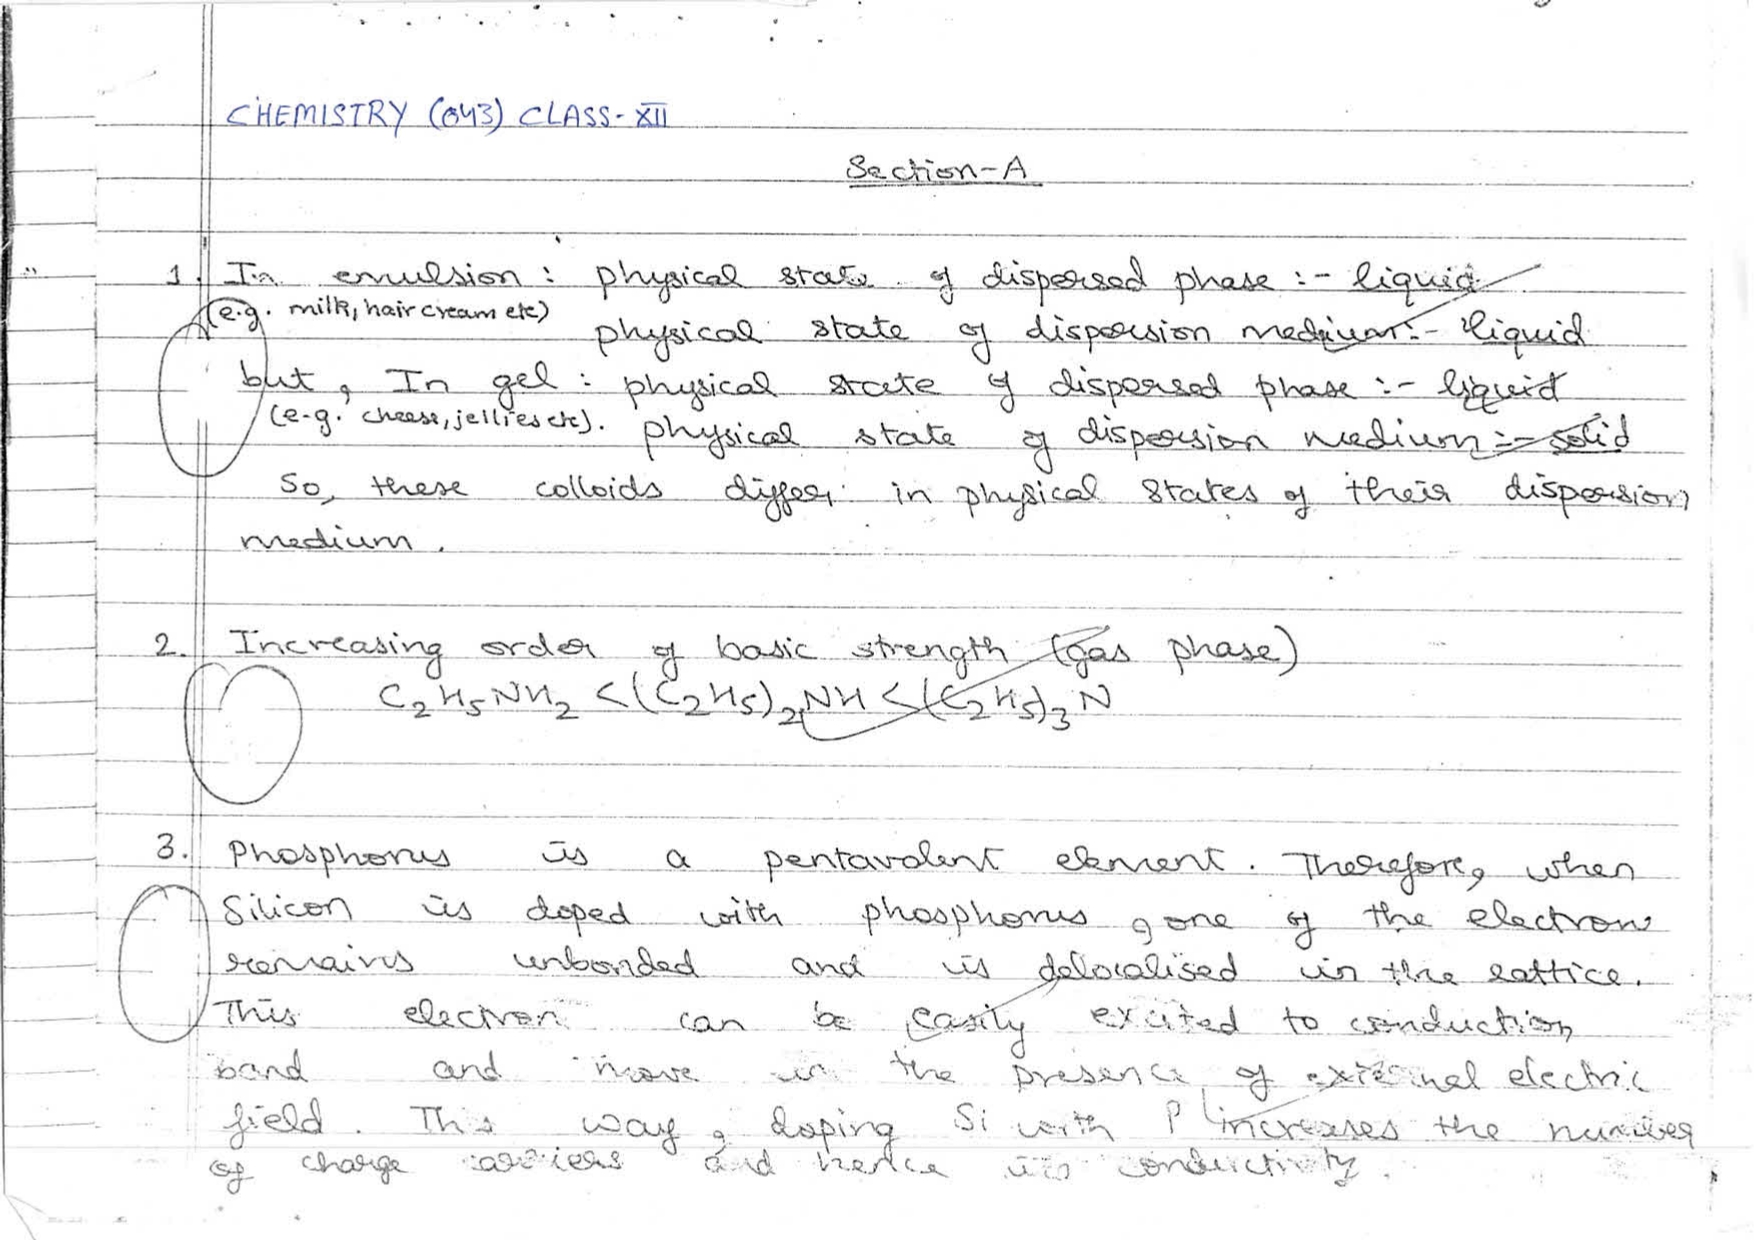 CHEMISTRY (043) CLASS-XII
Section-A
1. In emulsion : physical state of dispersed phase :- liquid
(e.g. milk, hair cream etc) physical state of dispersion medium :- liquid
but, In gel : physical state of dispersed phase :- liquid
(e.g. cheese, jellies etc). physical state of dispersion medium :- solid
So, these colloids differ in physical states of their dispersion
medium.
2. Increasing order of basic strength (gas phase)
C₂H₅NH₂ < (C₂H₅)₂NH < (C₂H₅)₃N
3. Phosphorus is a pentavalent element. Therefore, when
Silicon is doped with phosphorus, one of the electron
remains unbonded and is delocalised in the lattice.
This electron can be easily excited to conduction
band and move in the presence of external electric
field. This way, doping Si with P increases the number
of charge carriers and hence its conductivity.